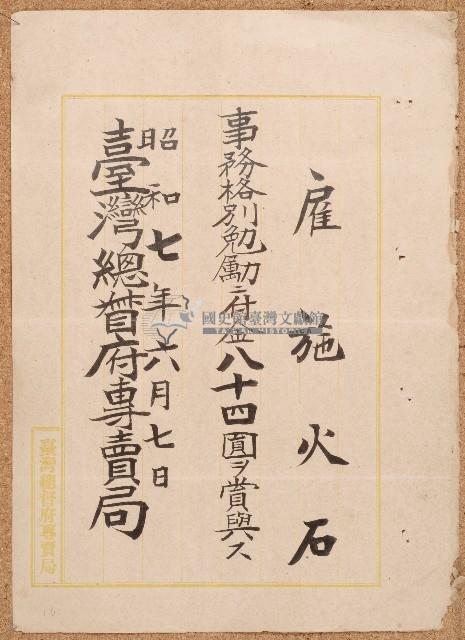 雇 施火石
事務格別勉勵ニ付金八十四圓ヲ賞與ス
昭和七年六月七日
臺灣總督府專賣局
臺灣總督府專賣局
國史館臺灣文獻館
TAIWAN HISTORICA
16